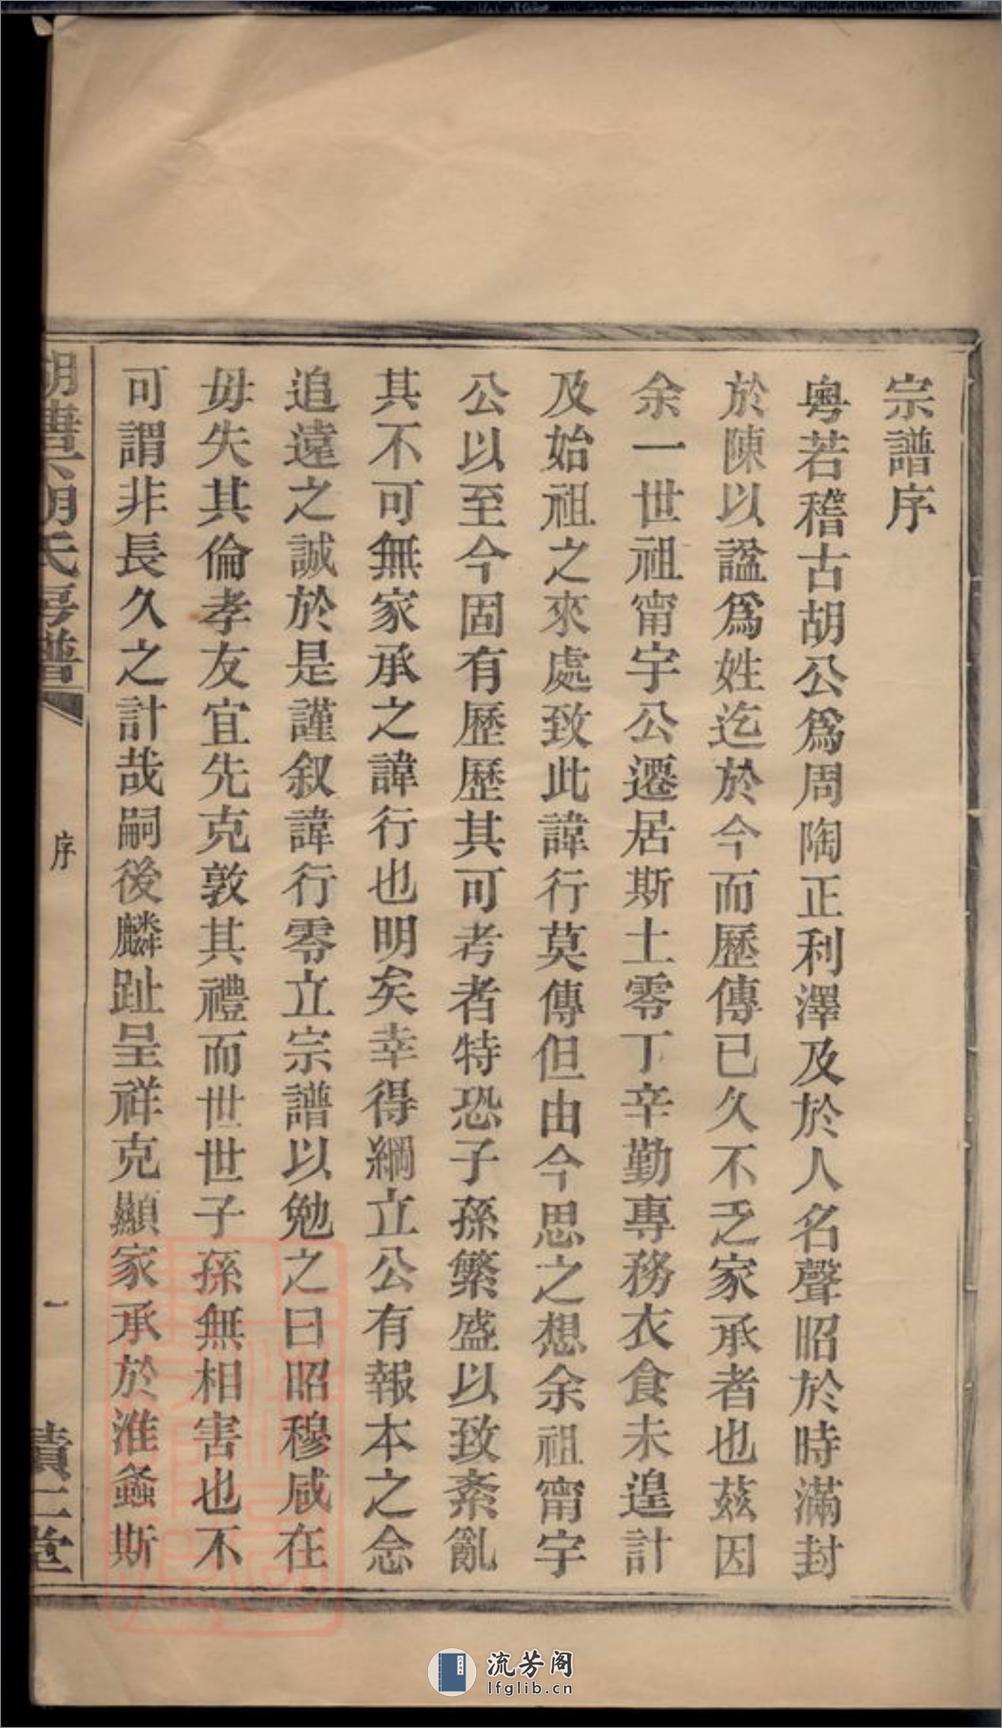 宗譜序
粵若稽古胡公爲周陶正利澤及於人名聲昭於時滿封
於陳以謚爲姓迄於今而歷傳已久不乏家承者也茲因
余一世祖甯宇公遷居斯土零丁辛勤專務衣食未遑計
及始祖之來處致此諱行莫傳但由今思之想余祖甯宇
公以至今固有歷歷其可考者特恐子孫繁盛以致紊亂
其不可無家承之諱行也明矣幸得綱立公有報本之念
追遠之誠於是謹叙諱行零立宗譜以勉之曰昭穆咸在
毋失其倫孝友宜先克敦其禮而世世子孫無相害也不
可謂非長久之計哉嗣後麟趾呈祥克顯家承於淮螽斯
胡氏房譜
序
一
堂
流芳阁
lfglib.cn